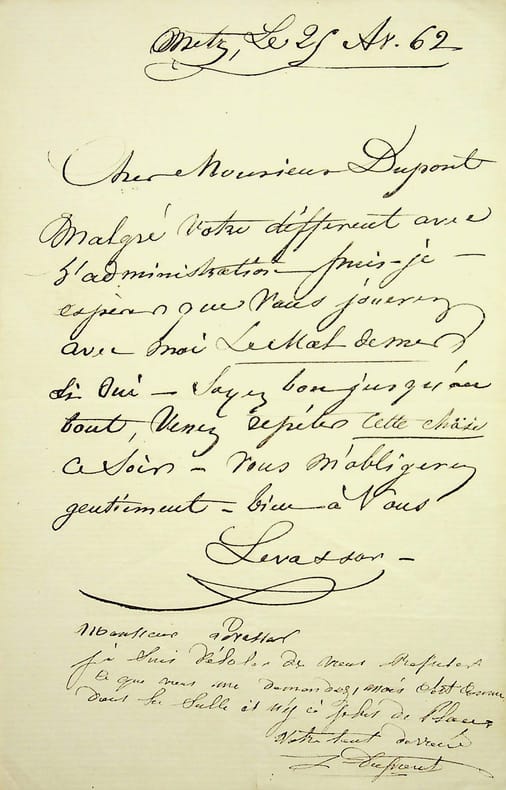 Metz, Le 25 Av. 62
Cher Monsieur Dupont
Malgré votre différent avec
l'administration puis-je —
espérer que vous jouerez
avec moi Le Mal de mer
Si Oui — Soyez bon jusqu'au
bout, Venez répéter cette chose
ce Soir — Vous m'obligerez
gentiement — bien à Vous
Levassor —
Monsieur Levassor
je suis désolé de vous refuser
ce que vous me demandez, mais c'est comme
dans la Salle il n'y a plus de Place.
Votre tout dévoué
Dupont